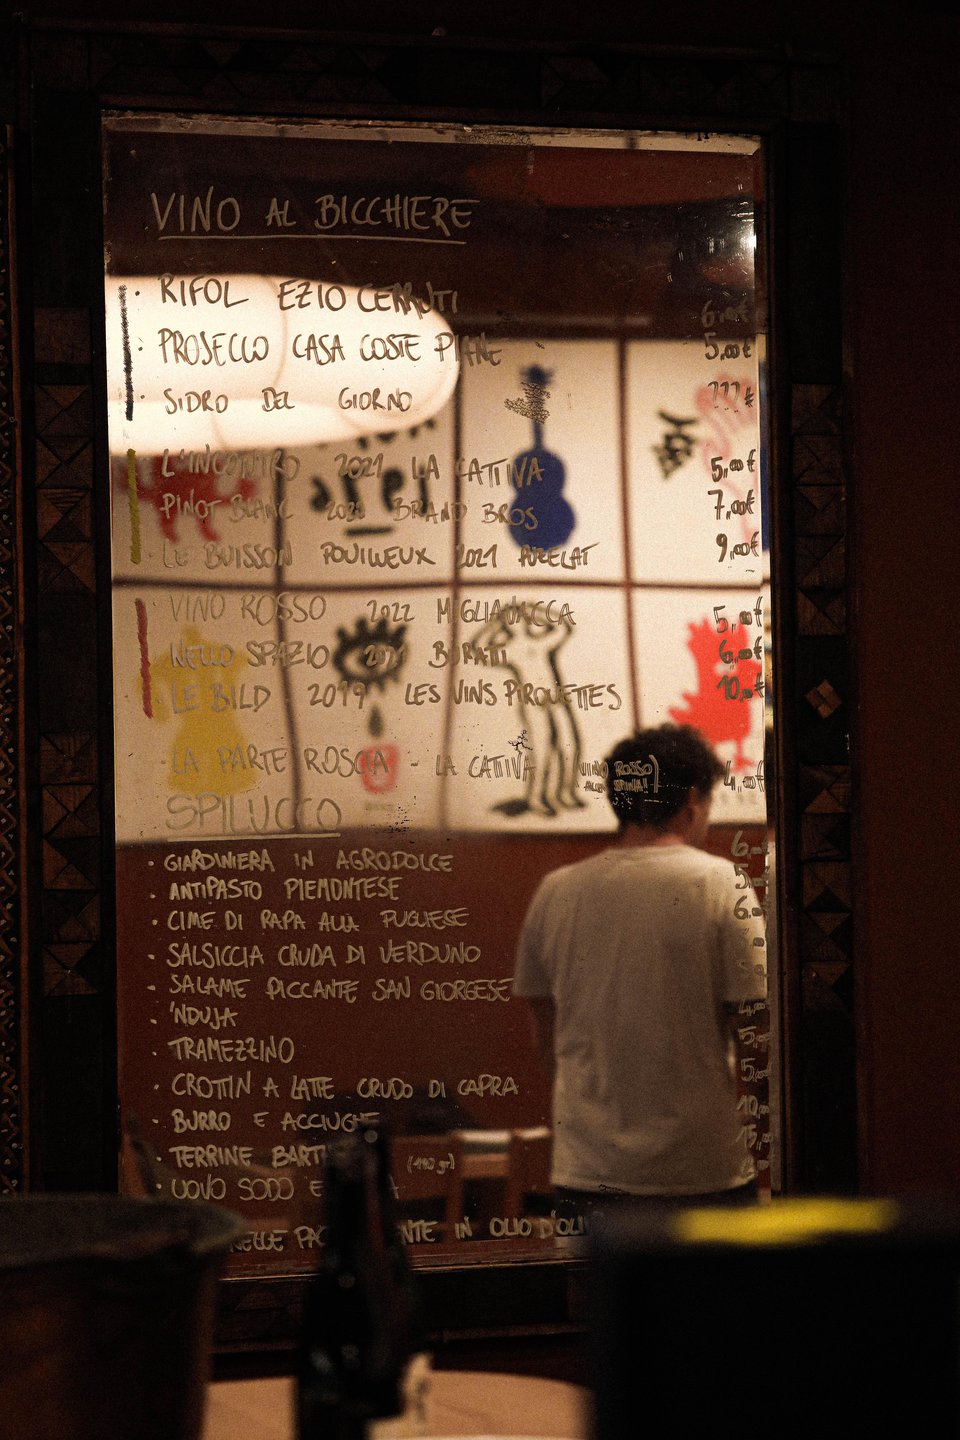 VINO AL BICCHIERE
· RIFOL EZIO CERRUTI 6,00€
· PROSECCO CASA COSTE PIANE 5,00€
· SIDRO DEL GIORNO ???€
· L'INCONTRO 2021 LA CATTIVA 5,00€
· PINOT BLANC 2020 BRAND BROS 7,00€
· LE BUISSON POUILLEUX 2021 PUZELAT 9,00€
· VINO ROSSO 2022 MIGLIAVACCA 5,00€
· NELLO SPAZIO BURATTI 6,00€
· LE BILD 2019 LES VINS PIROUETTES 10,00€
· LA PARTE ROSCA - LA CATTIVA (VINO ROSSO ALLA SPINA!) 4,00€
SPILUCCO
· GIARDINIERA IN AGRODOLCE 6,00
· ANTIPASTO PIEMONTESE 5,00
· CIME DI RAPA ALLA PUGLIESE 6,00
· SALSICCIA CRUDA DI VERDUNO
· SALAME PICCANTE SAN GIORGESE
· 'NDUJA
· TRAMEZZINO
· CROTTIN A LATTE CRUDO DI CAPRA
· BURRO E ACCIUGHE
· TERRINE (190 gr)
· UOVO SODO E
IN OLIO D'OLI